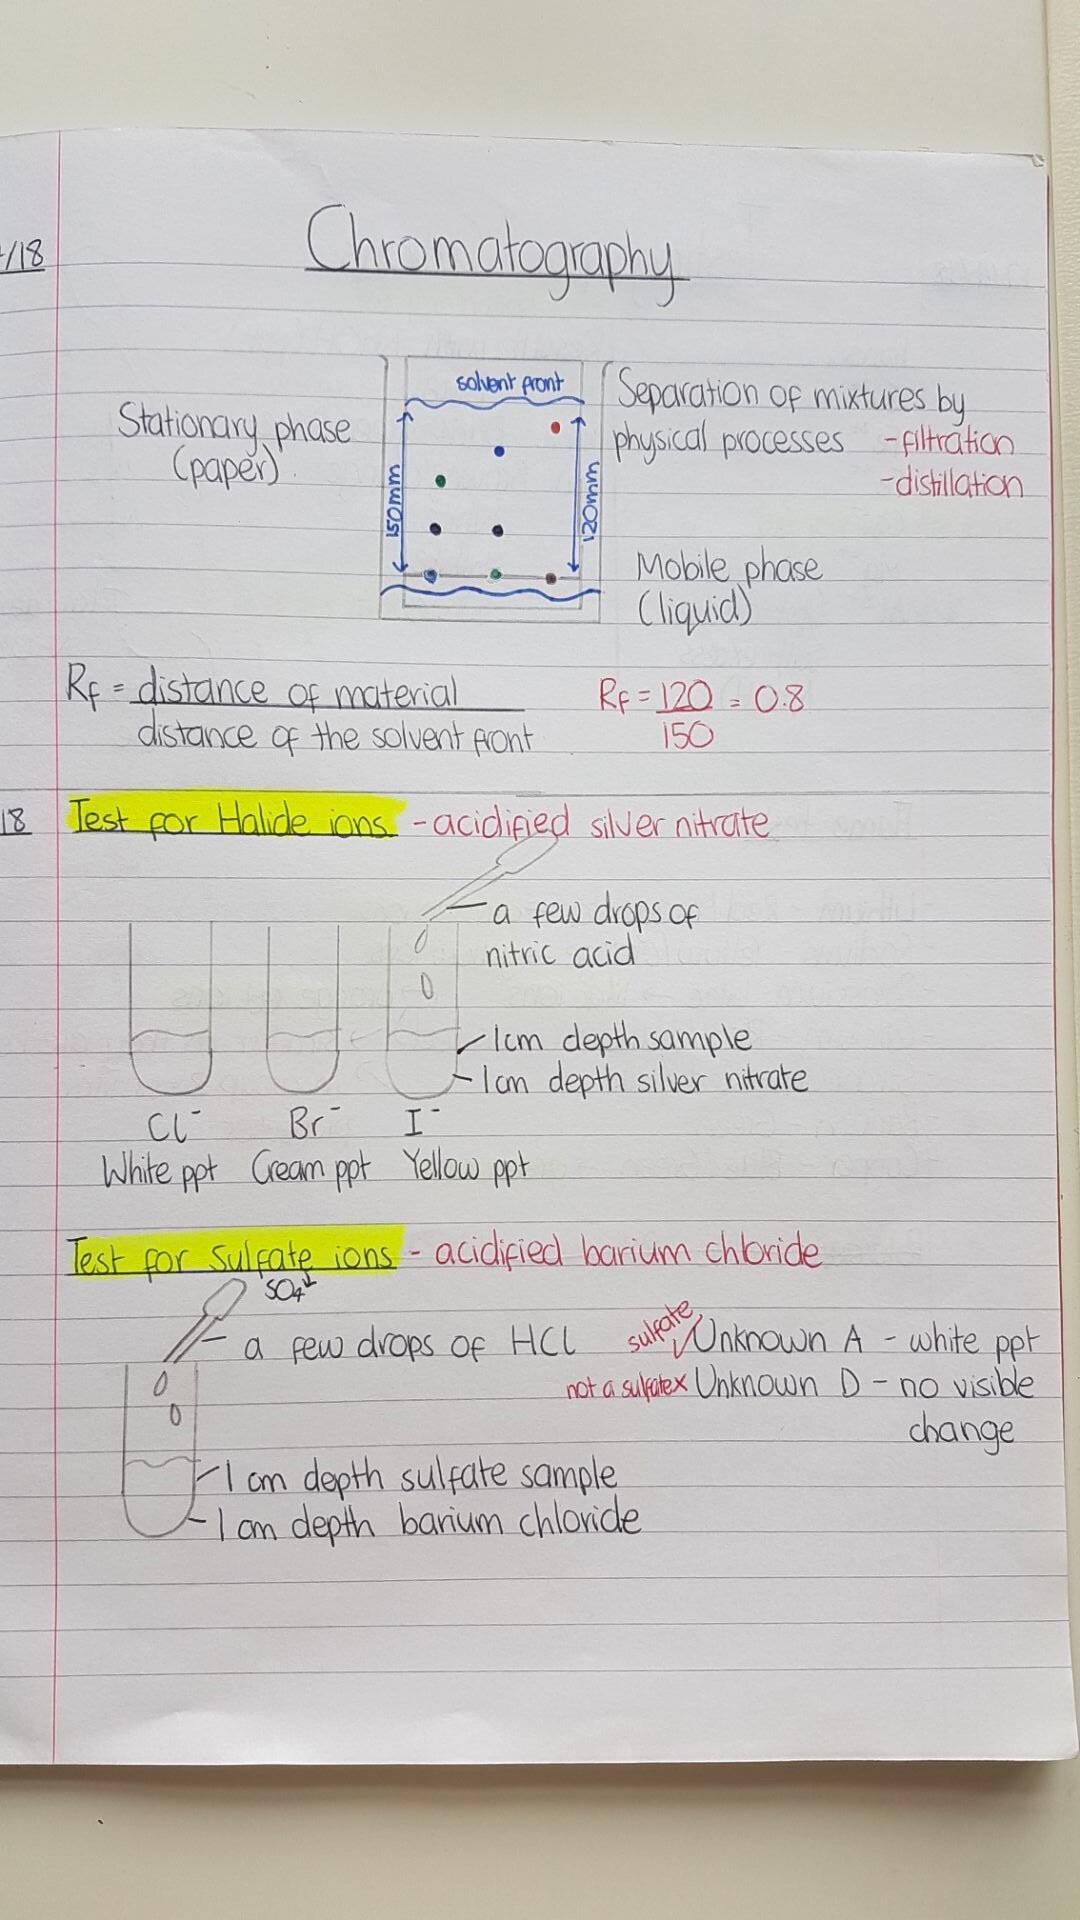 /18
Chromatography
solvent front
Stationary phase
(paper).
150mm
120mm
Separation of mixtures by
physical processes -filtration
-distillation
Mobile phase
(liquid)
Rf = distance of material
distance of the solvent front
Rf = 120 = 0.8
150
18
Test for Halide ions - acidified silver nitrate
a few drops of
nitric acid
1cm depth sample
1cm depth silver nitrate
Cl⁻ Br⁻ I⁻
White ppt Cream ppt Yellow ppt
Test for Sulfate ions - acidified barium chloride
SO4
a few drops of HCl
sulfate ✓ Unknown A - white ppt
not a sulfate x Unknown D - no visible
change
1 cm depth sulfate sample
1 cm depth barium chloride